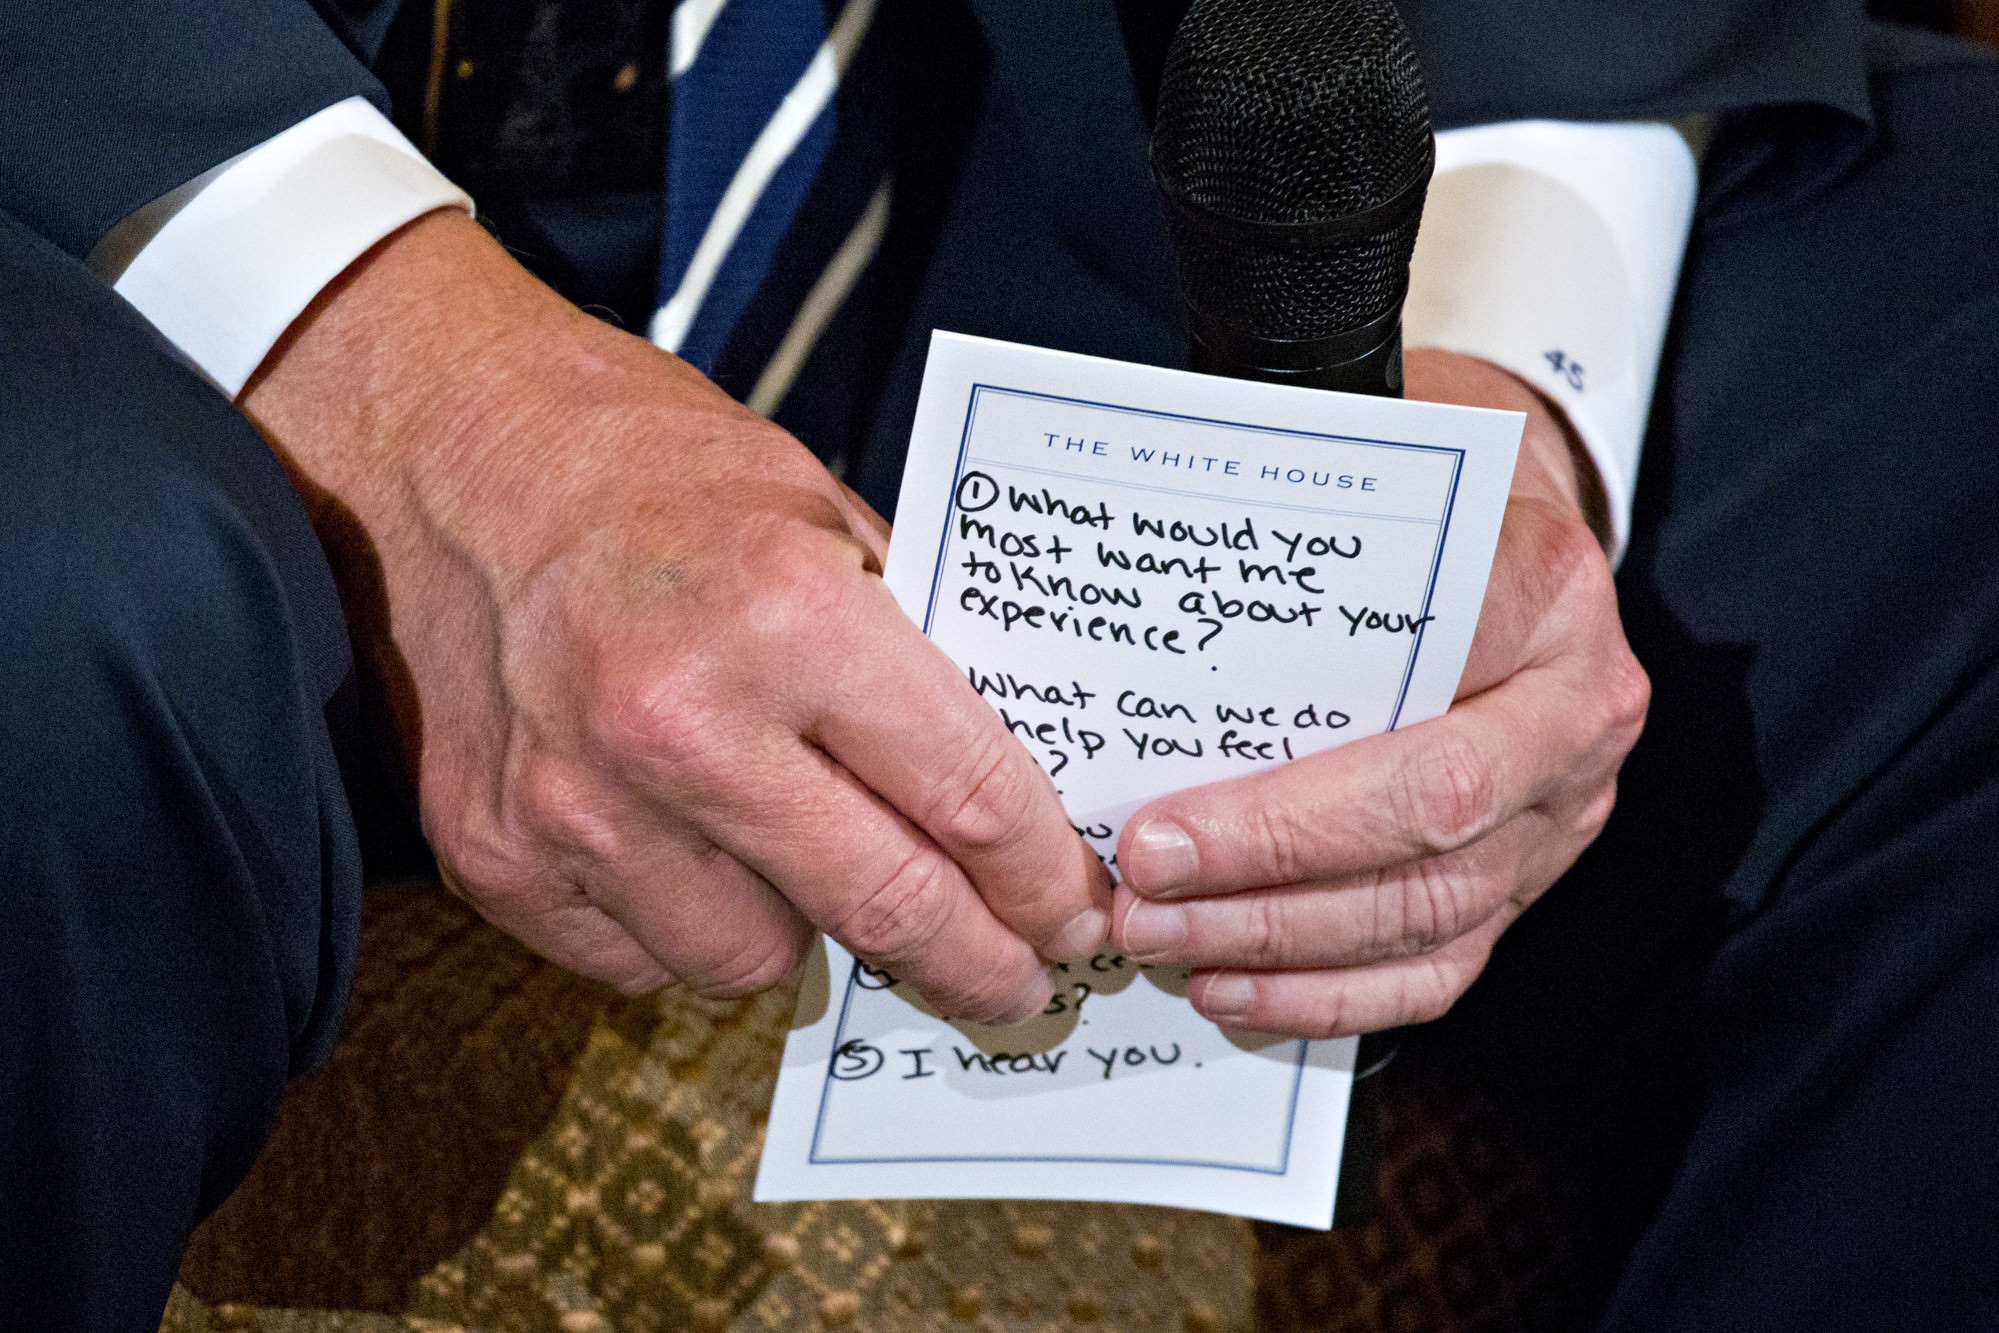 45
THE WHITE HOUSE
① What would you
most want me
to know about your
experience?
What can we do
help you feel
?
s?
⑤ I hear you.